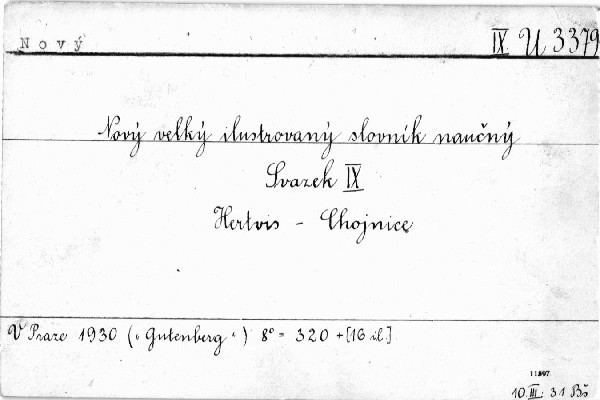 Nový IX U 3379
Nový velký ilustrovaný slovník naučný
Svazek IX
Hertvis - Chojnice
V Praze 1930 („Gutenberg“) 8° = 320 + [16 il.]
11897
10. III. 31 Bš